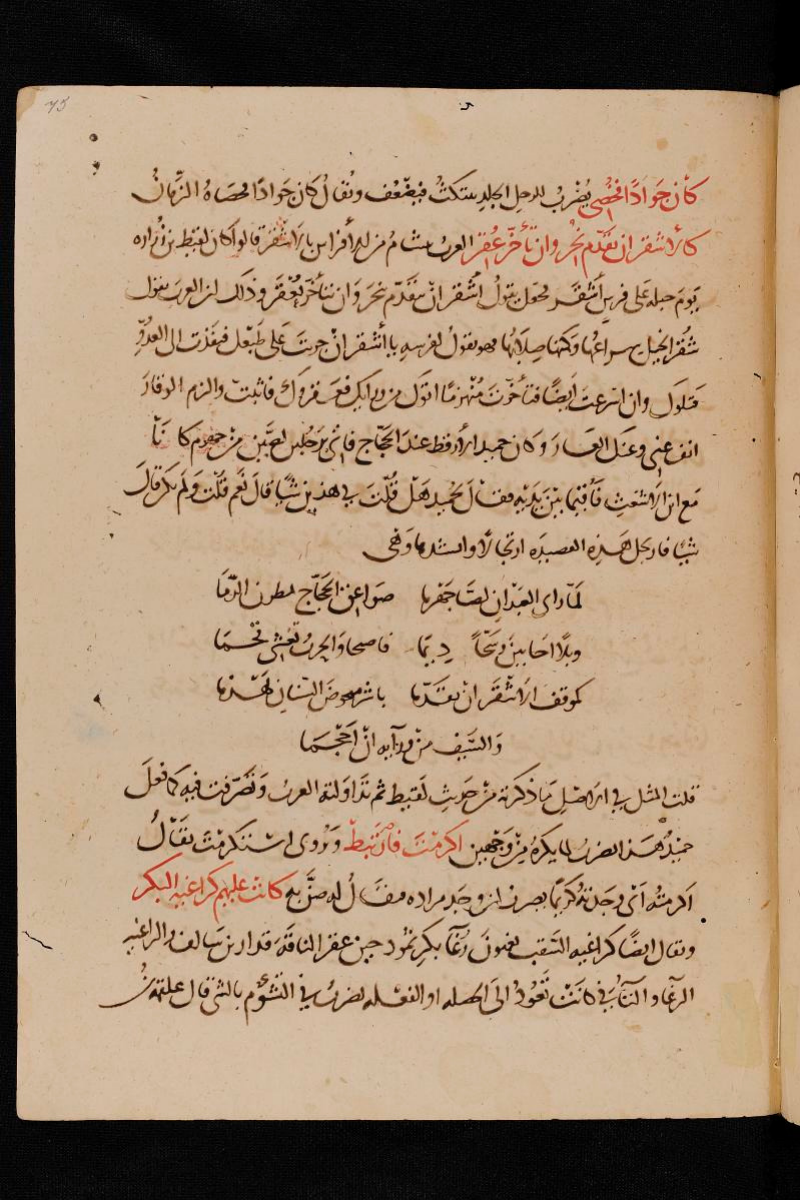 75
كان جوادًا فخُصي يُضرب للرجل الجلد ينتكث فيضعف ويقال كان جوادًا فخصاهُ الزمانُ
كالاشقر ان تقدّم نُحر وان تأخّر عُقر العرب تتشاءم من الافراس بالاشقر قالوا كان لقيط بن زراره
يومَ جبله على فرس أشقر فجعل يقول أشقر ان تتقدّم تنحر وان تتأخّر تعقر وذلك ان العرب تقول
شقر الخيل سراعُها وكمتها صلابُها فهو يقول لفرسهِ يا أشقر ان جريت على طبعك فتقدمت الى العدوّ
قتلوك وان اسرعت ايضًا فتأخّرت منهزمًا اتوك من ورائك فعقروك فاثبت والزم الوقار
انف عني وعنك العار وكان حميد الارقط عند الحجاج فاتي برجلين لصّين من جهرم كانا
مع ابن الاشعث فأقيما بين يديه فقال لحميد هل قُلت في هذين شيًا قال نعم قُلت ولم يكن قال
شيًا فارتجل هذه القصيده ارتجالًا وانشدها وهي
لمّا راى العبدان لصّا جهرما صواعق الحجّاج يمطرن الدّما
وبلًا احايين وسحًّا دِيَمًا فاصبحا والحربُ تغشى قُحَمَا
كموقف الاشقر ان تقدّما باشر منحوض السنان لهذما
والسيف من ورآيه ان احجما
قلت المثل في الاصل ما ذكرته من حديث لقيط ثم تداولته العرب وتصرّفت فيه كما فعل
حميدٌ هذا يضرب لما يكره من وجهين اكرمتَ فارتبط ويروى استكرمتَ يقالُ
اكرمته أي وجدته كريمًا يضرب لمن وجد مراده فيقال له ضنّ به كانت عليهم كراغيه البكر
ويقال ايضًا كراغيه السّقب يعنون رُغا بكر ثمود حين عقر الناقة قدار بن سالف والراغيه
الرغآ والتأنيث في كانت تعود الى الخصله او الفعله يضرب في التشؤم بالشي قال علقمة بنُ